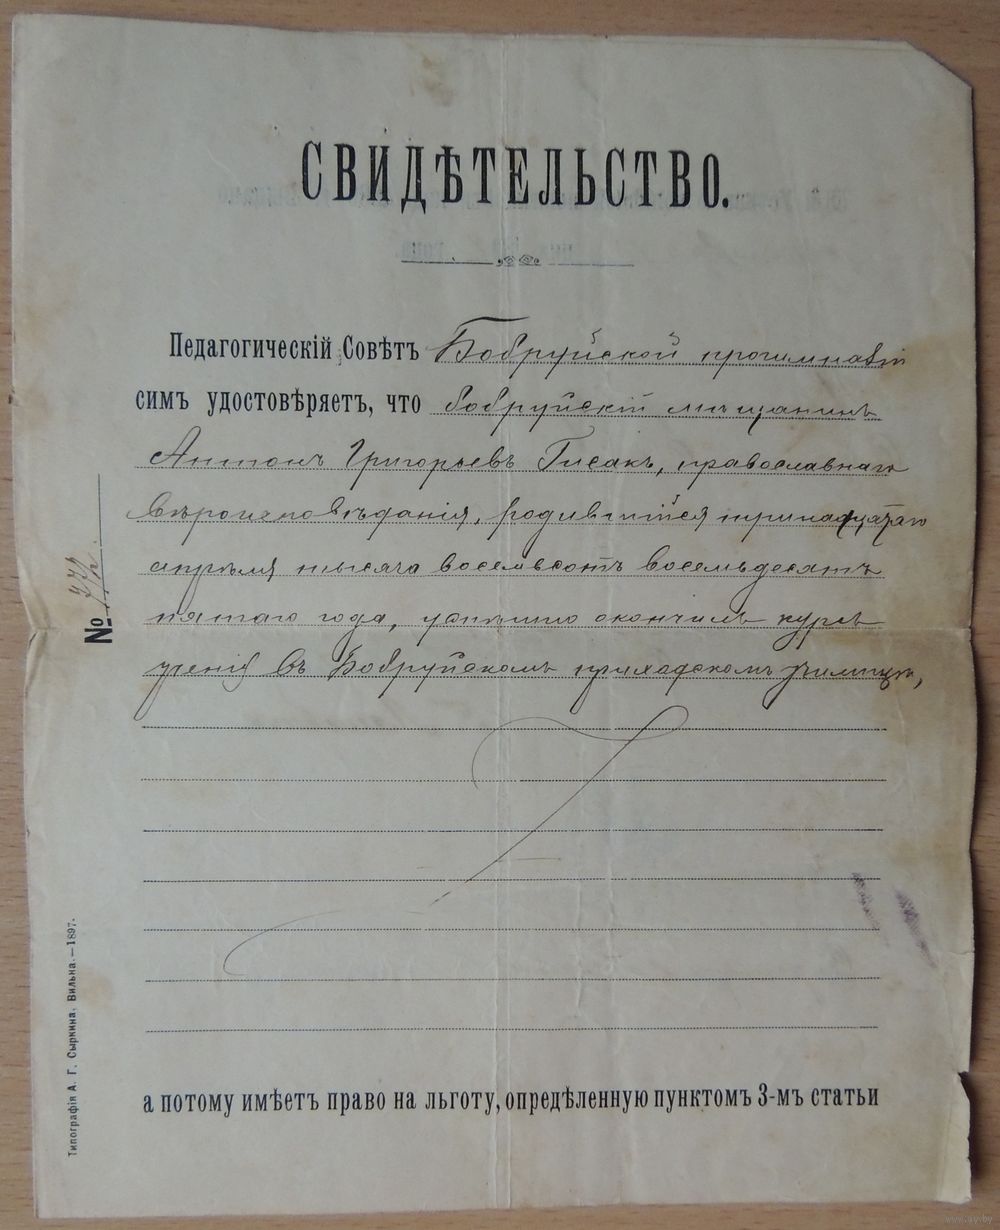 СВИДѢТЕЛЬСТВО.
Педагогическій Совѣтъ Бобруйской прогимназіи
симъ удостовѣряетъ, что бобруйскій мѣщанинъ
Антонъ Григорьевъ Гисакъ, православнаго
вѣроисповѣданія, родившійся тринадцатаго
апрѣля тысяча восемьсотъ восемьдесятъ
пятаго года, успѣшно окончилъ курсъ
ученія въ Бобруйскомъ приходскомъ училищѣ,
а потому имѣетъ право на льготу, опредѣленную пунктомъ 3-мъ статьи
№
Типографія А. Г. Сыркина, Вильна.—1897.